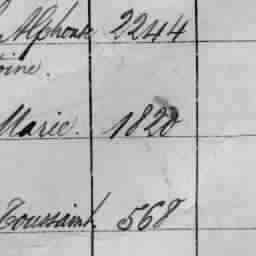 Alphonse 2244
oine.
Marie. 1820
Toussaint. 568